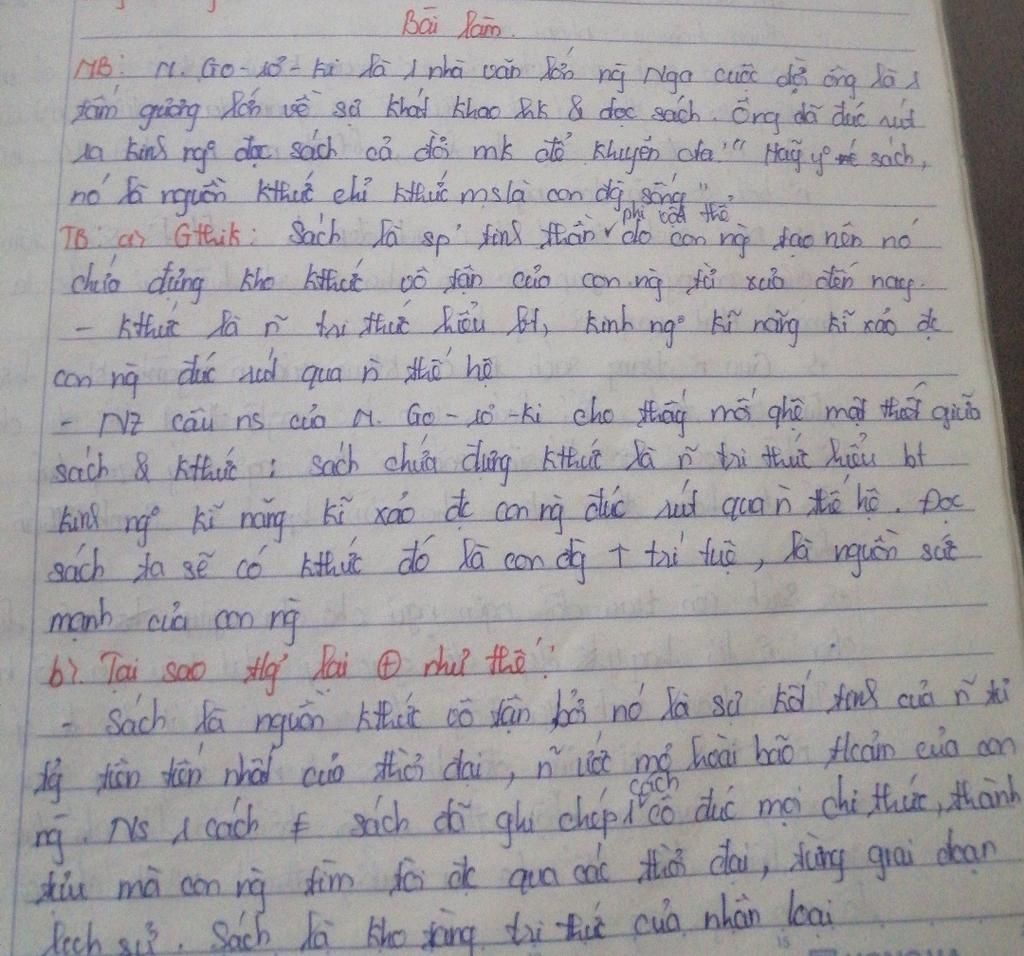 Bài làm.
MB: M. Go-rơ-ki là 1 nhà văn lớn ng̀ Nga cuộc đời ông là 1
tấm gương lớn về sự khát khao hk & đọc sách. Ông đã đúc rút
ra kinh ngº đọc sách cả đời mk để khuyên cta: " Hãy yº sách,
nó là nguồn kthức chỉ kthức ms là con đg sống".
TB: a) Gthik: Sách là sp' tinh thần phi vật thể do con ng̀ tạo nên nó
chứa đựng kho kthức vô tận của con ng̀ từ xưa đến nay.
- kthức là ñ tri thức hiểu bt, kinh ngº kĩ năng kĩ xảo đc
con ng̀ đúc rút qua ǹ thế hệ
- NZ câu ns của M. Go-rơ-ki cho thấy mối qhệ mật thiết giữa
sách & kthức: sách chứa đựng kthức là ñ tri thức hiểu bt
kinh ngº kĩ năng kĩ xảo đc con ng̀ đúc rút qua ǹ thế hệ. Đọc
sách ta sẽ có kthức đó là con đg ↑ trí tuệ, là nguồn sức
mạnh của con ng̀
b). Tại sao lại ⊕ như thế:
- Sách là nguồn kthức vô tận bởi nó là sự kết tinh của ñ tư
tg tiên tiến nhất của thời đại, ñ ước mơ hoài bão của con
ng̀. Ns 1 cách ≠ sách đã ghi chép 1 cách cô đúc mọi chi thức, thành
tựu mà con ng̀ tìm tòi đc qua các thời đại, từng giai đoạn
lịch sử. Sách là kho tàng tri thức của nhân loại